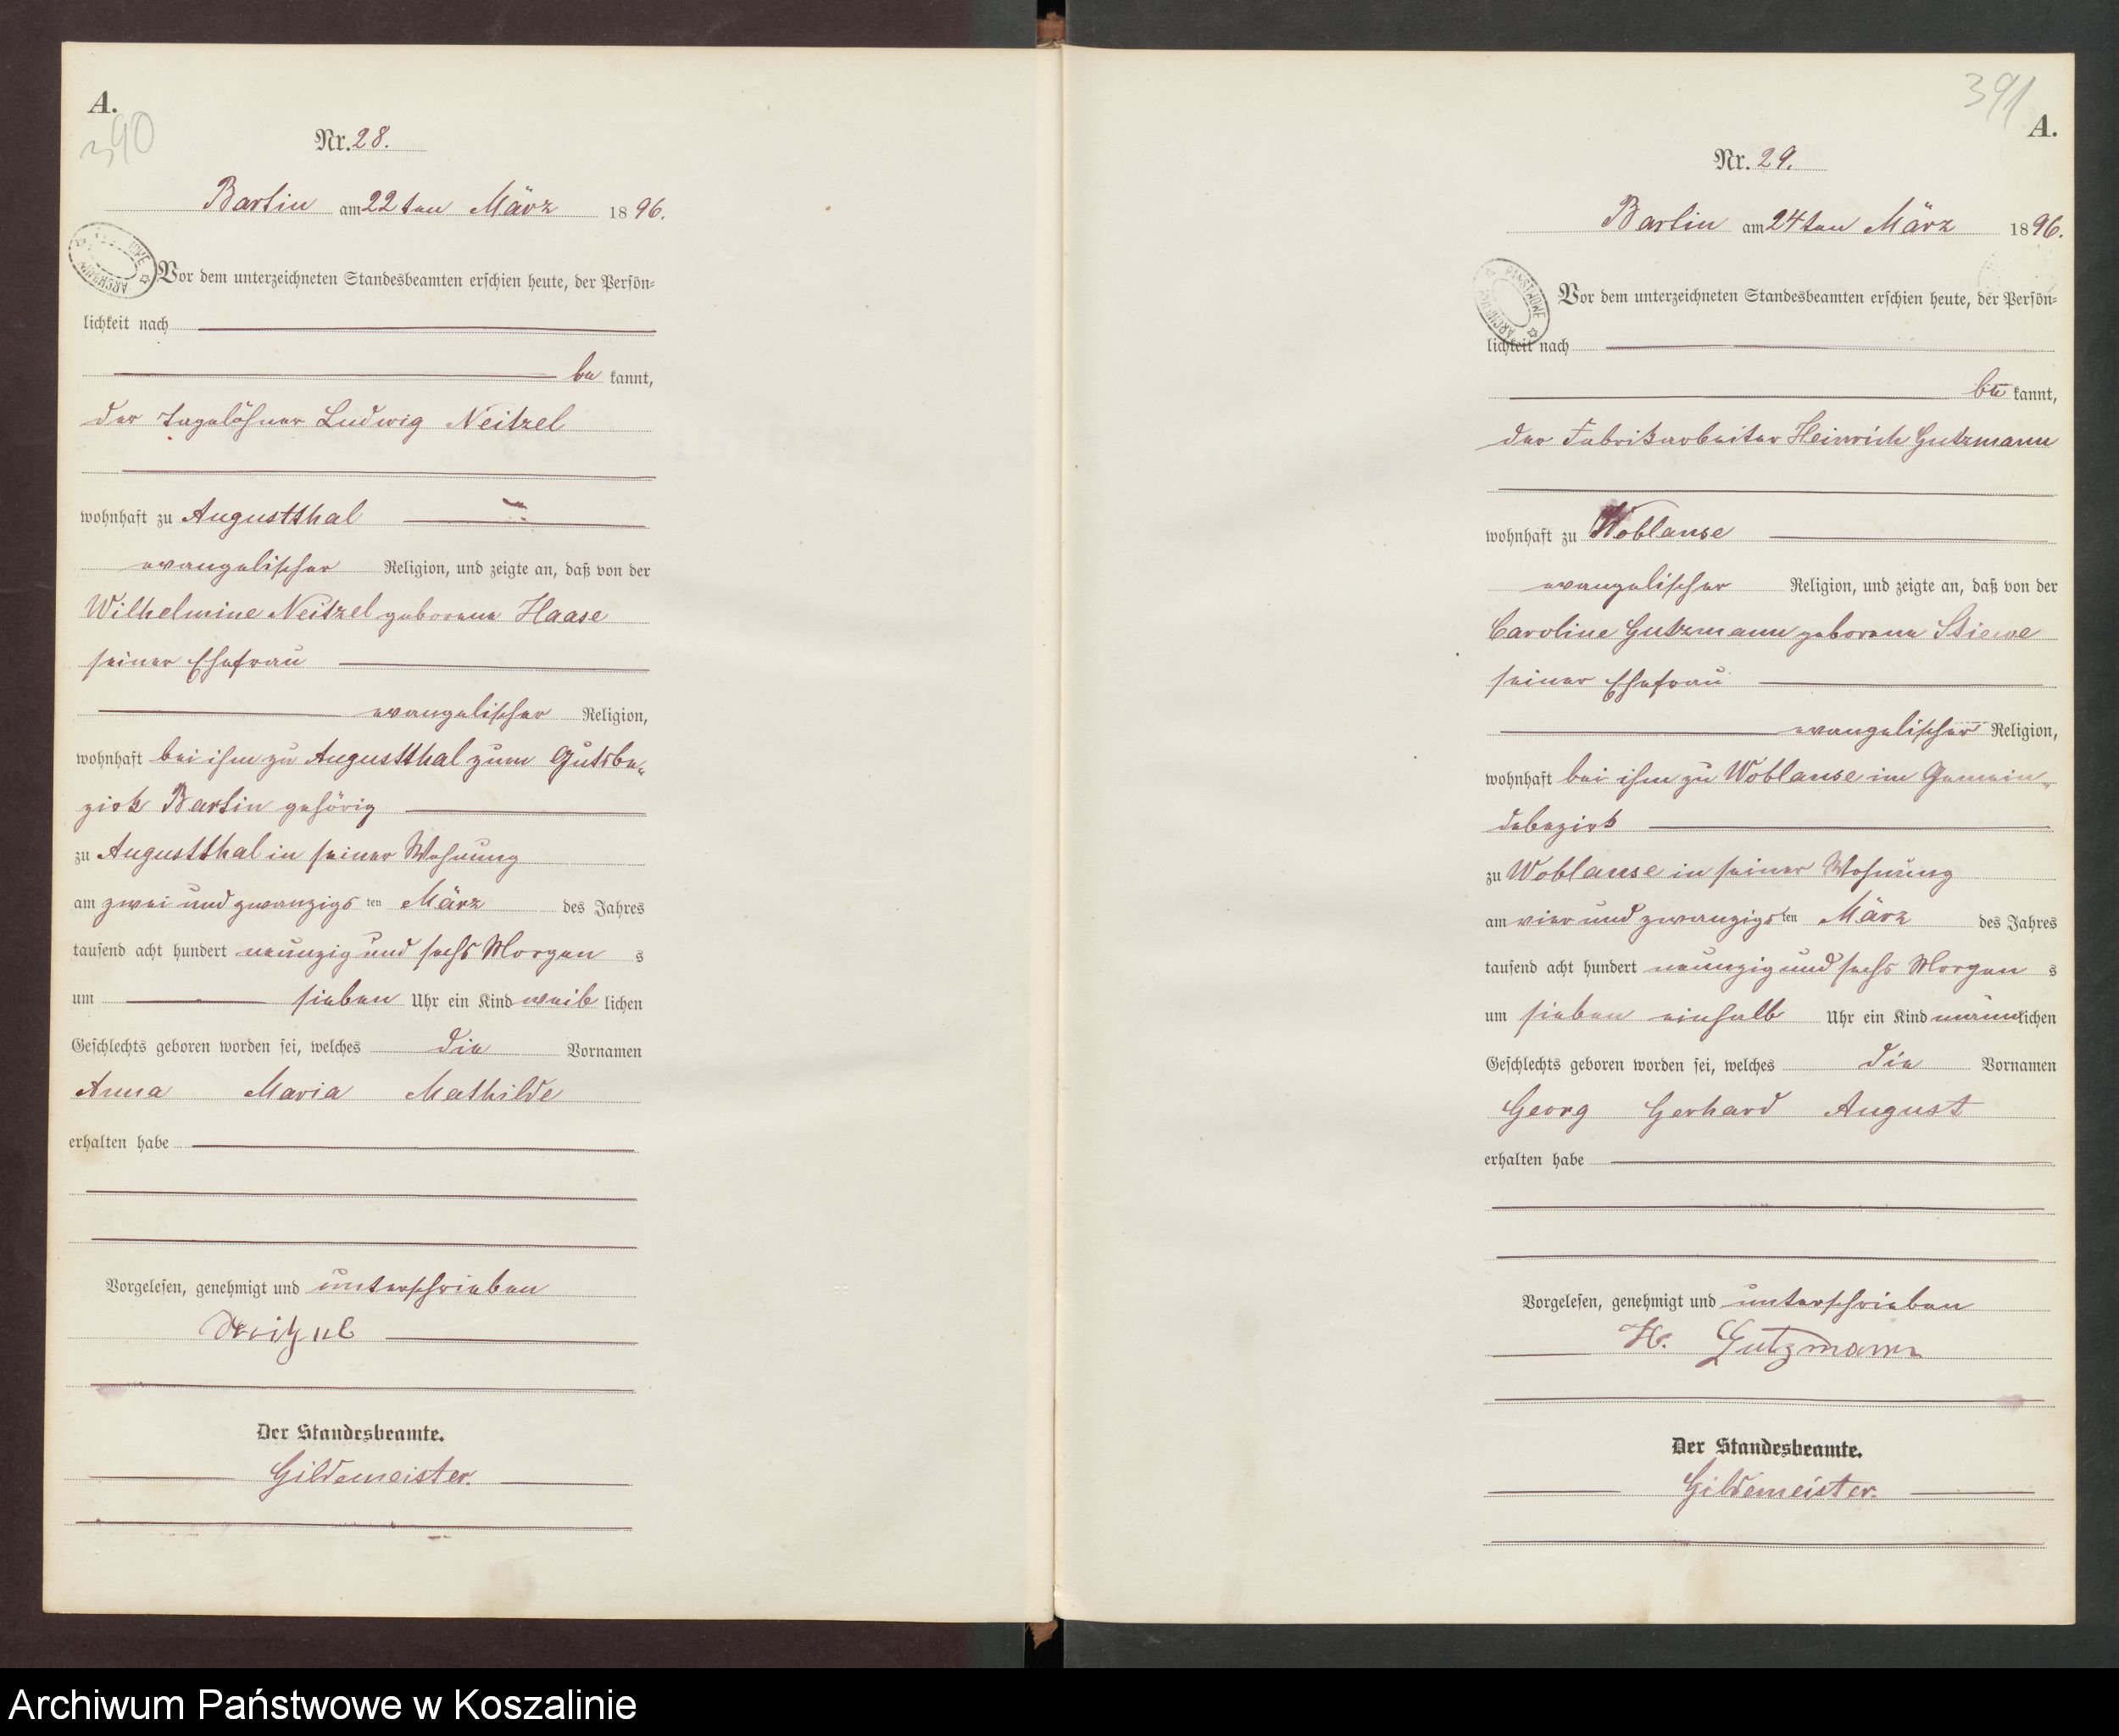 A.
390
Nr. 28.
Bartin am 22ten März 1896.
Vor dem unterzeichneten Standesbeamten erschien heute, der Persön-
lichkeit nach
be kannt,
der Tagelöhner Ludwig Neitzel
wohnhaft zu Augustthal
evangelischer Religion, und zeigte an, daß von der
Wilhelmine Neitzel geborene Haase
seiner Ehefrau
evangelischer Religion,
wohnhaft bei ihm zu Augustthal zum Gutsbe-
zirk Bartin gehörig
zu Augustthal in seiner Wohnung
am zwei und zwanzigs ten März des Jahres
tausend acht hundert neunzig und sechs Morgen s
um sieben Uhr ein Kind weib lichen
Geschlechts geboren worden sei, welches die Vornamen
Anna Maria Mathilde
erhalten habe
Vorgelesen, genehmigt und unterschrieben
Neitzel
Der Standesbeamte.
Gildemeister.
391
A.
Nr. 29.
Bartin am 24ten März 1896.
ARCHIWUM PAŃSTWOWE
Vor dem unterzeichneten Standesbeamten erschien heute, der Persön-
lichkeit nach
be kannt,
der Fabrikarbeiter Heinrich Gutzmann
wohnhaft zu Woblanse
evangelischer Religion, und zeigte an, daß von der
Caroline Gutzmann geborene Stiewe
seiner Ehefrau
evangelischer Religion,
wohnhaft bei ihm zu Woblanse im Gemein-
debezirk
zu Woblanse in seiner Wohnung
am vier und zwanzigs ten März des Jahres
tausend acht hundert neunzig und sechs Morgen s
um sieben einhalb Uhr ein Kind männlichen
Geschlechts geboren worden sei, welches die Vornamen
Georg Gerhard August
erhalten habe
Vorgelesen, genehmigt und unterschrieben
H. Gutzmann
Der Standesbeamte.
Gildemeister.
Archiwum Państwowe w Koszalinie